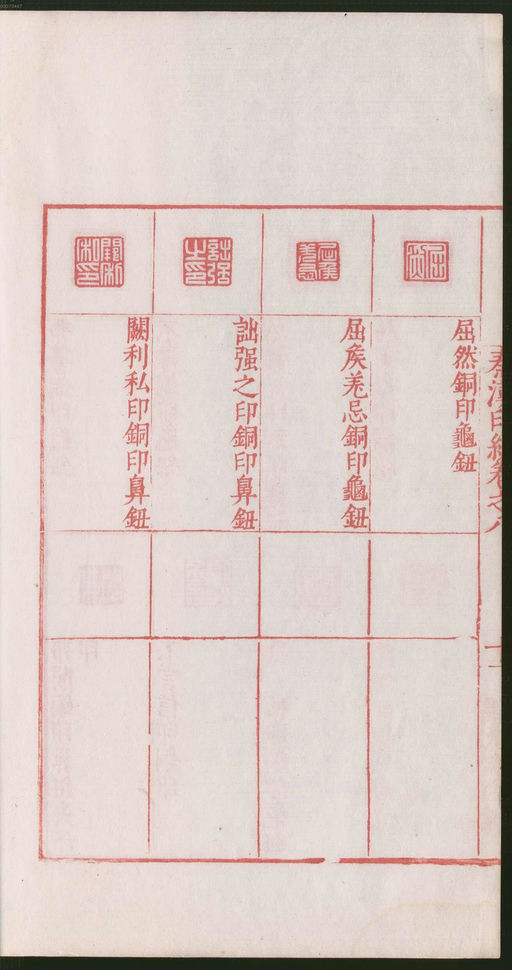 秦漢印統卷之八
屈然銅印龜鈕
屈矦羌忌銅印龜鈕
詘强之印銅印鼻鈕
闕利私印銅印鼻鈕